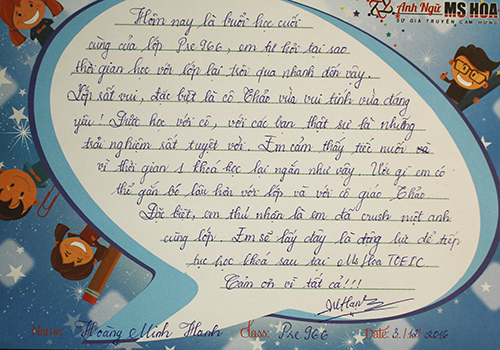 Anh Ngữ MS HOA
SỨ GIẢ TRUYỀN CẢM HỨNG
Hôm nay là buổi học cuối
cùng của lớp Pre 966, em tự hỏi tại sao
thời gian học với lớp lại trôi qua nhanh đến vậy.
Lớp rất vui, đặc biệt là cô Thảo vừa vui tính vừa đáng
yêu! Được học với cô, với các bạn thật sự là những
trải nghiệm rất tuyệt vời. Em cảm thấy tiếc nuối
vì thời gian 1 khoá học lại ngắn như vậy. Ước gì em có
thể gắn bó lâu hơn với lớp và với cô giáo Thảo
Đặc biệt, em thú nhận là em đã crush một anh
cùng lớp. Em sẽ lấy đây là động lực để tiếp
tục học khoá sau tại Ms Hoa TOEIC
Cảm ơn vì tất cả!!!
Name: Hoàng Minh Hạnh Class: Pre 966 Date: 3/12/2016